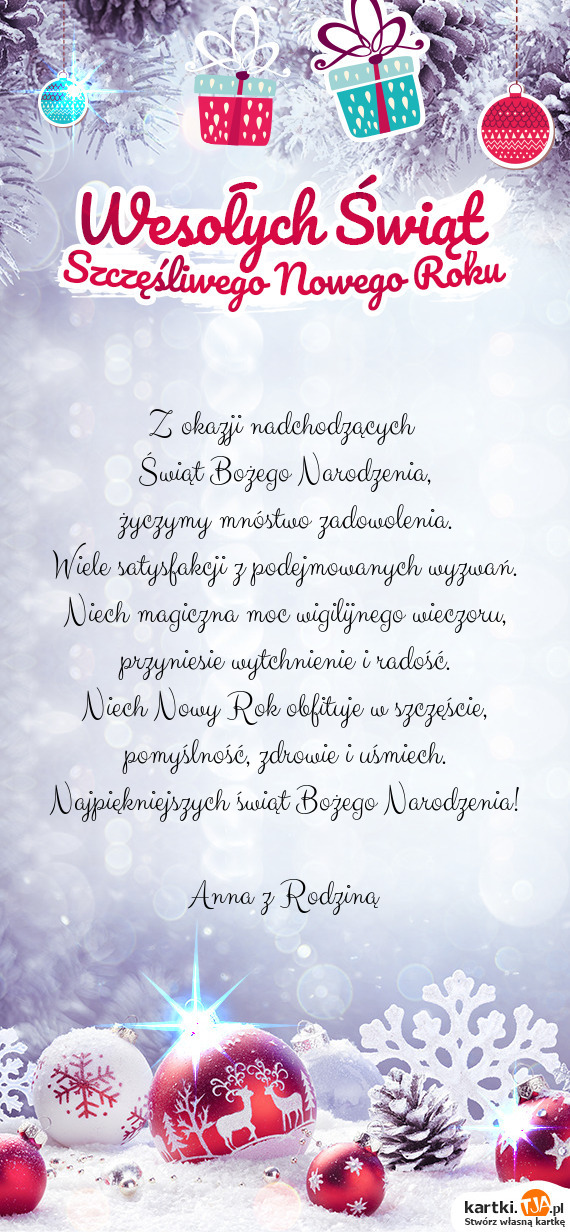 Wesołych Świąt
Szczęśliwego Nowego Roku
Z okazji nadchodzących
Świąt Bożego Narodzenia,
życzymy mnóstwo zadowolenia.
Wiele satysfakcji z podejmowanych wyzwań.
Niech magiczna moc wigilijnego wieczoru,
przyniesie wytchnienie i radość.
Niech Nowy Rok obfituje w szczęście,
pomyślność, zdrowie i uśmiech.
Najpiękniejszych świąt Bożego Narodzenia!
Anna z Rodziną
kartki.TJA.pl
Stwórz własną kartkę